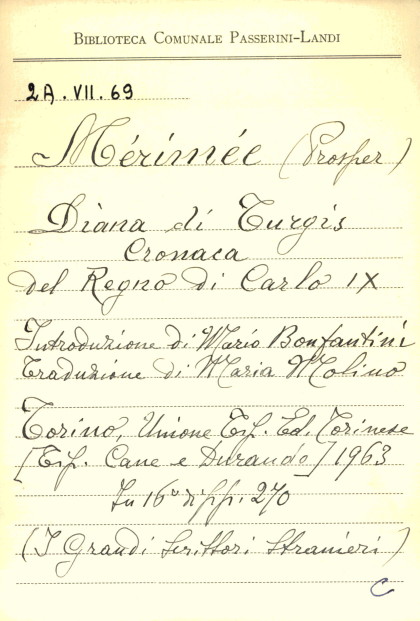 BIBLIOTECA COMUNALE PASSERINI-LANDI
2A.VII.69
Mérimée (Prosper)
Diana di Turgis
Cronaca
del Regno di Carlo IX
Introduzione di Mario Bonfantini
Traduzione di Maria Molino
Torino, Unione Tip. Ed. Torinese
[Tip. Cane e Durando] 1963
In 16° di pp. 270
(I Grandi Scrittori Stranieri)
C